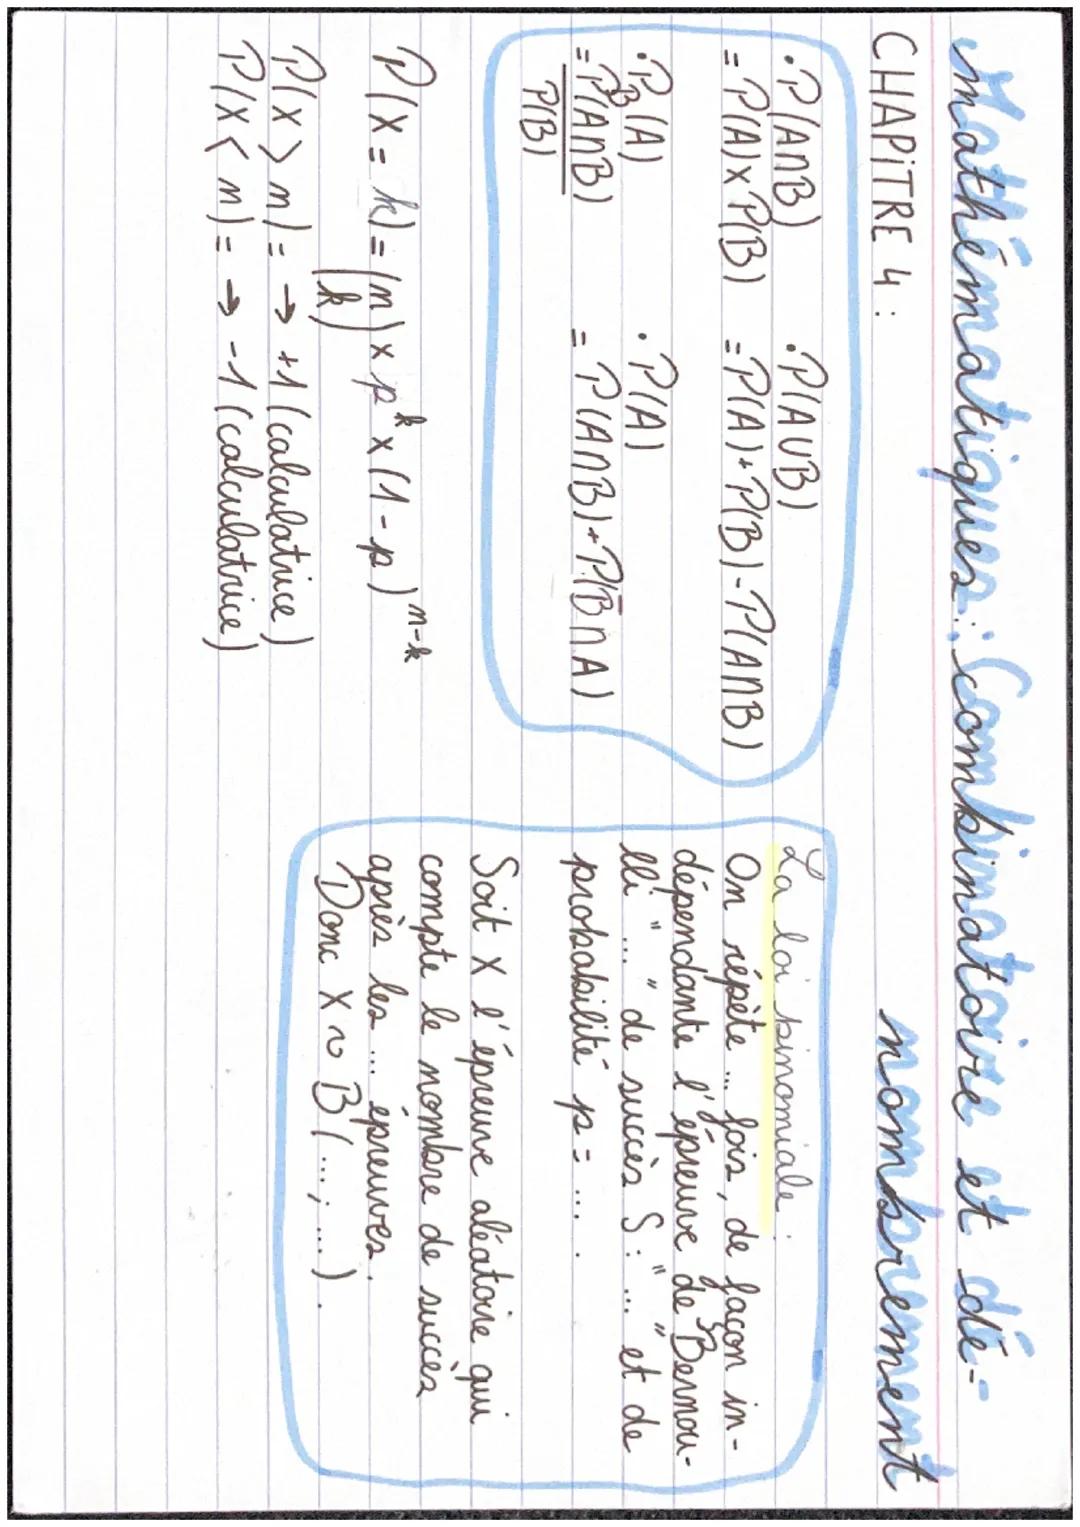 Mathématiques : Combinatoire et dé-
nombrement
CHAPITRE 4 :
• P(A∩B)
= P(A) x P(B)
• P(A∪B)
= P(A) + P(B) - P(A∩B)
• P_B(A)
= P(A∩B)
P(B)
• P(A)
= P(A∩B) + P(B̄∩A)
P(X = k) = (n k) x p^k x (1 - p)^n-k
P(X > n) = → +1 (calculatrice)
P(X < n) = → -1 (calculatrice)
La loi binomiale :
On répète ... fois, de façon in-
dépendante l'épreuve de Bernou-
lli " ... " de succès S : " ... " et de
probabilité p = ... .
Soit X l'épreuve aléatoire qui
compte le nombre de succès
après les ... épreuves.
Donc X ~ B ( ... ; ... ) .